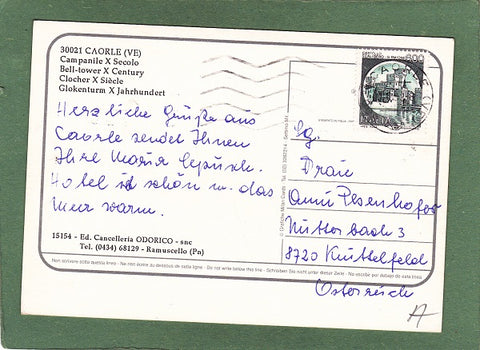 30021 CAORLE (VE)
Campanile X Secolo
Bell-tower X Century
Clocher X Siècle
Glokenturm X Jahrhundert
Herzliche Grüße aus
Caorle sendet Ihnen
Ihre Maria
Hotel ist schön u. das
Meer warm.
15154 - Ed. Cancelleria ODORICO - snc
Tel. (0434) 68129 - Ramuscello (Pn)
Non scrivere sotto questa linea - Ne rien écrire au dessous de cette ligne - Do not write below this line - Nicht unter dieser Zeile - No escribir por debajo de esta línea
600
ITALIA
Sg.
Anni
8720 Knittelfeld
Österreich